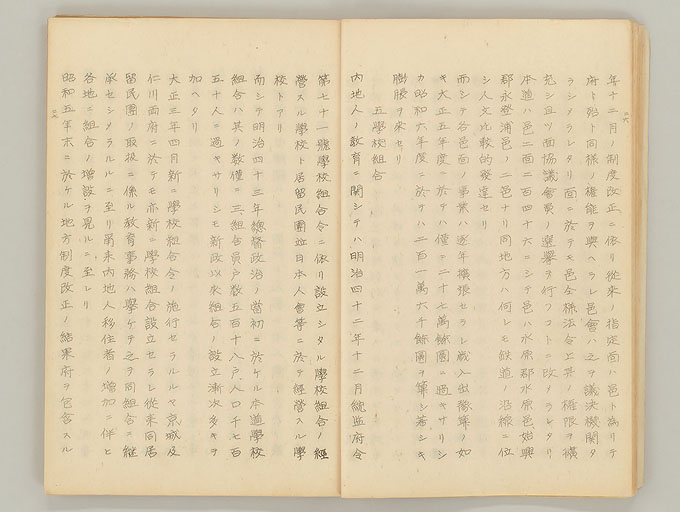 二六
年十二月ノ制度改正ニ依リ従来ノ指定面ハ邑ト為リテ
府ト殆ト同様ノ権能ヲ與ヘラレ邑會ハ之ヲ議決機関タ
ラシメラレタリ面ニ於テモ邑全様法令上其ノ権限ヲ擴
充シ且ツ面協議會員ノ選擧ヲ行フコトニ改メラレタリ
本道ハ邑二面二百四十六ニシテ邑ハ水原郡水原邑始興
郡永登浦邑ノ二邑ナリ同地方ハ何レモ鉄道ノ沿線ニ位
シ人文比較的發達セリ
而シテ各邑面ノ事業ハ逐年擴張セラレ歳入出豫算ノ如
キ大正五年度ニ於テハ僅ニ二十七萬餘圓ニ過キサリシ
カ昭和六年度ニ於テハ二百一萬六千餘圓ヲ算シ著シキ
膨脹ヲ来セリ
五學校組合
内地人ノ教育ニ関シテハ明治四十二年十二月統監府令
第七十一號學校組合令ニ依リ設立シタル學校組合ノ經
營スル學校ト居留民團並日本人會等ニ於テ經營スル學
校トアリ
而シテ明治四十三年總督政治ノ當初ニ於ケル本道學校
組合ハ其ノ数僅ニ三、組合員戸数五百十八戸、人口千七百
五十人ニ過キサリシモ新政以来組合ノ設立漸次多キヲ
加ヘタリ
大正三年四月新ニ學校組合令ノ施行セラルルヤ京城及
仁川両府ニ於テモ亦新ニ學校組合設立セラレ従来同居
留民團ノ取扱ニ係ル教育事務ハ擧ケテ之ヲ同組合ニ継
承セシメラルルニ至リ爾来内地人移住者ノ増加ニ伴ヒ
各地ニ組合ノ増設ヲ見ルニ至レリ
昭和五年末ニ於ケル地方制度改正ノ結果府ヲ包含スル